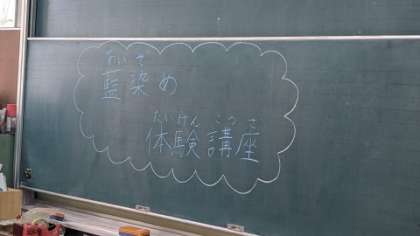 あいぞ
藍染め
たいけん こうざ
体験講座